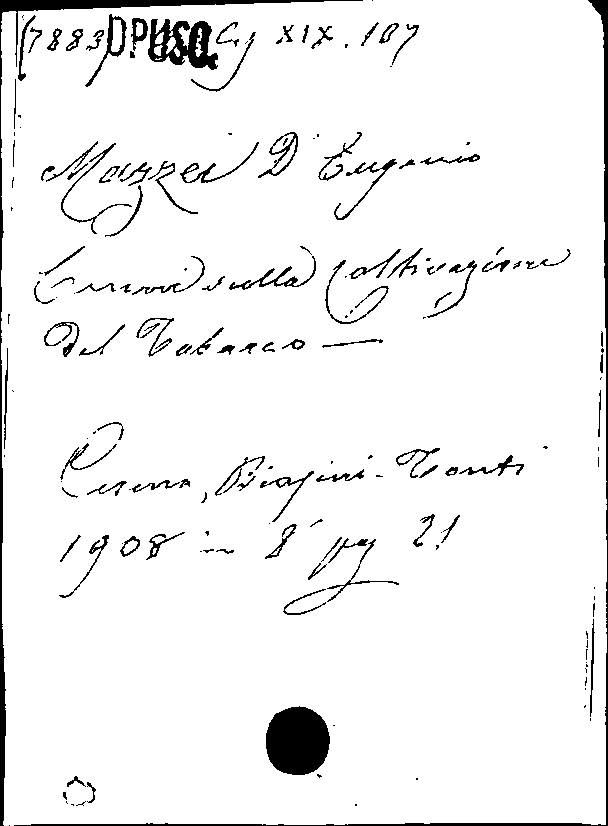 (7883) DPUSO. Cg XIX. 107
Mazzei Dr Eugenio
Cenni sulla coltivazione
Del Tabacco —
Cesena, Biagini-Tonti
1908 in 8° pag 21